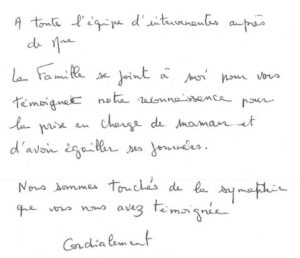 A toute l'équipe d'intervenantes auprès
de Mme
La Famille se joint à moi pour vous
témoigner notre reconnaissance pour
la prise en charge de maman et
d'avoir égailler ses journées.
Nous sommes touchés de la symapthie
que vous nous avez témoignée
Cordialement